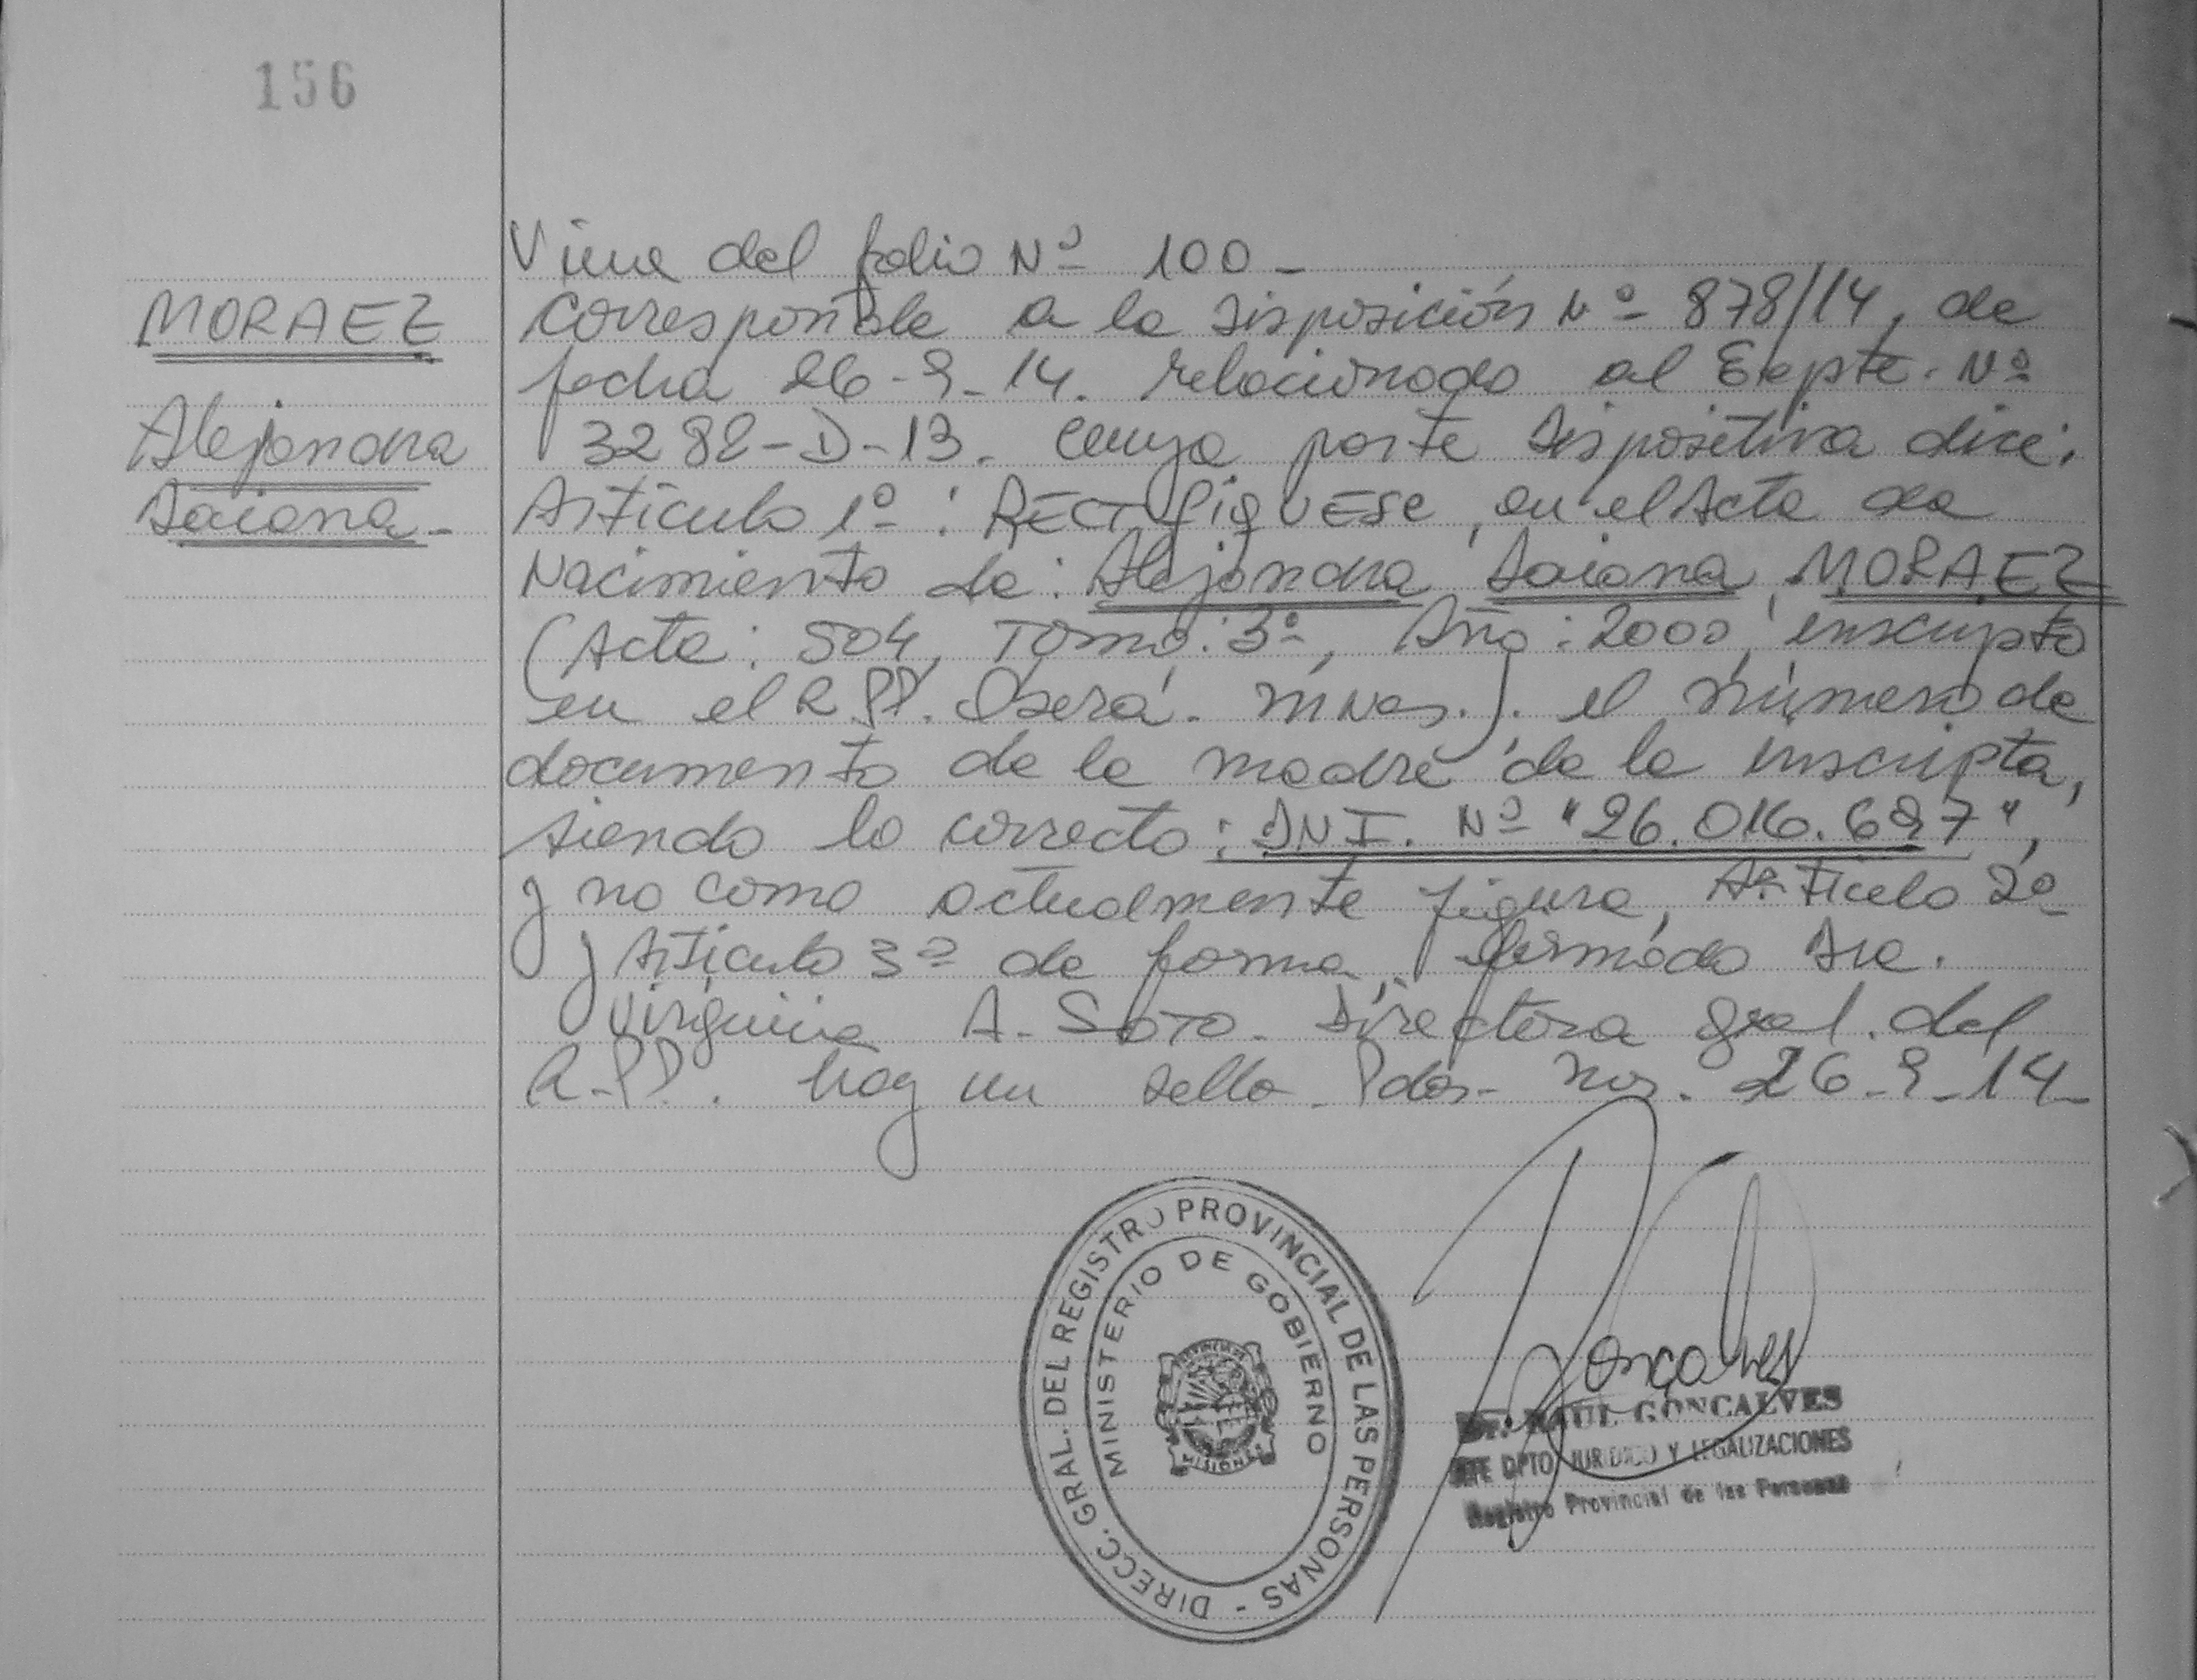 156
Viene del folio Nº 100 -
MORAEZ
Alejandra
Daiana -
Correspondte a la disposición Nº 878/14, de
fecha 26-9-14. relacionado al Expte. Nº
3282-D-13. cuya parte dispositiva dice:
Artículo 1º: RECTIFIQUESE, en el Acta de
Nacimiento de: Alejandra Daiana MORAEZ
(Acta: 504, Tomo: 3º, Año: 2000, inscripta
en el R.PP. Oberá. Mnes.). el número de
documento de la madre de la inscripta,
siendo lo correcto: DNI. Nº "26.016.697",
y no como actualmente figura, Artículo 2º
y Artículo 3º de forma, firmado Dra.
Virginia A. SOTO. Directora gral. del
R.PP. hay un sello. Pdas. Mes. 26-9-14-
DIRECC. GRAL. DEL REGISTRO PROVINCIAL DE LAS PERSONAS -
MINISTERIO DE GOBIERNO
PROVINCIA DE
MISIONES
Gonçalves
Dr. RAUL GONCALVES
JEFE DPTO. JURIDICO Y LEGALIZACIONES
Registro Provincial de las Personas